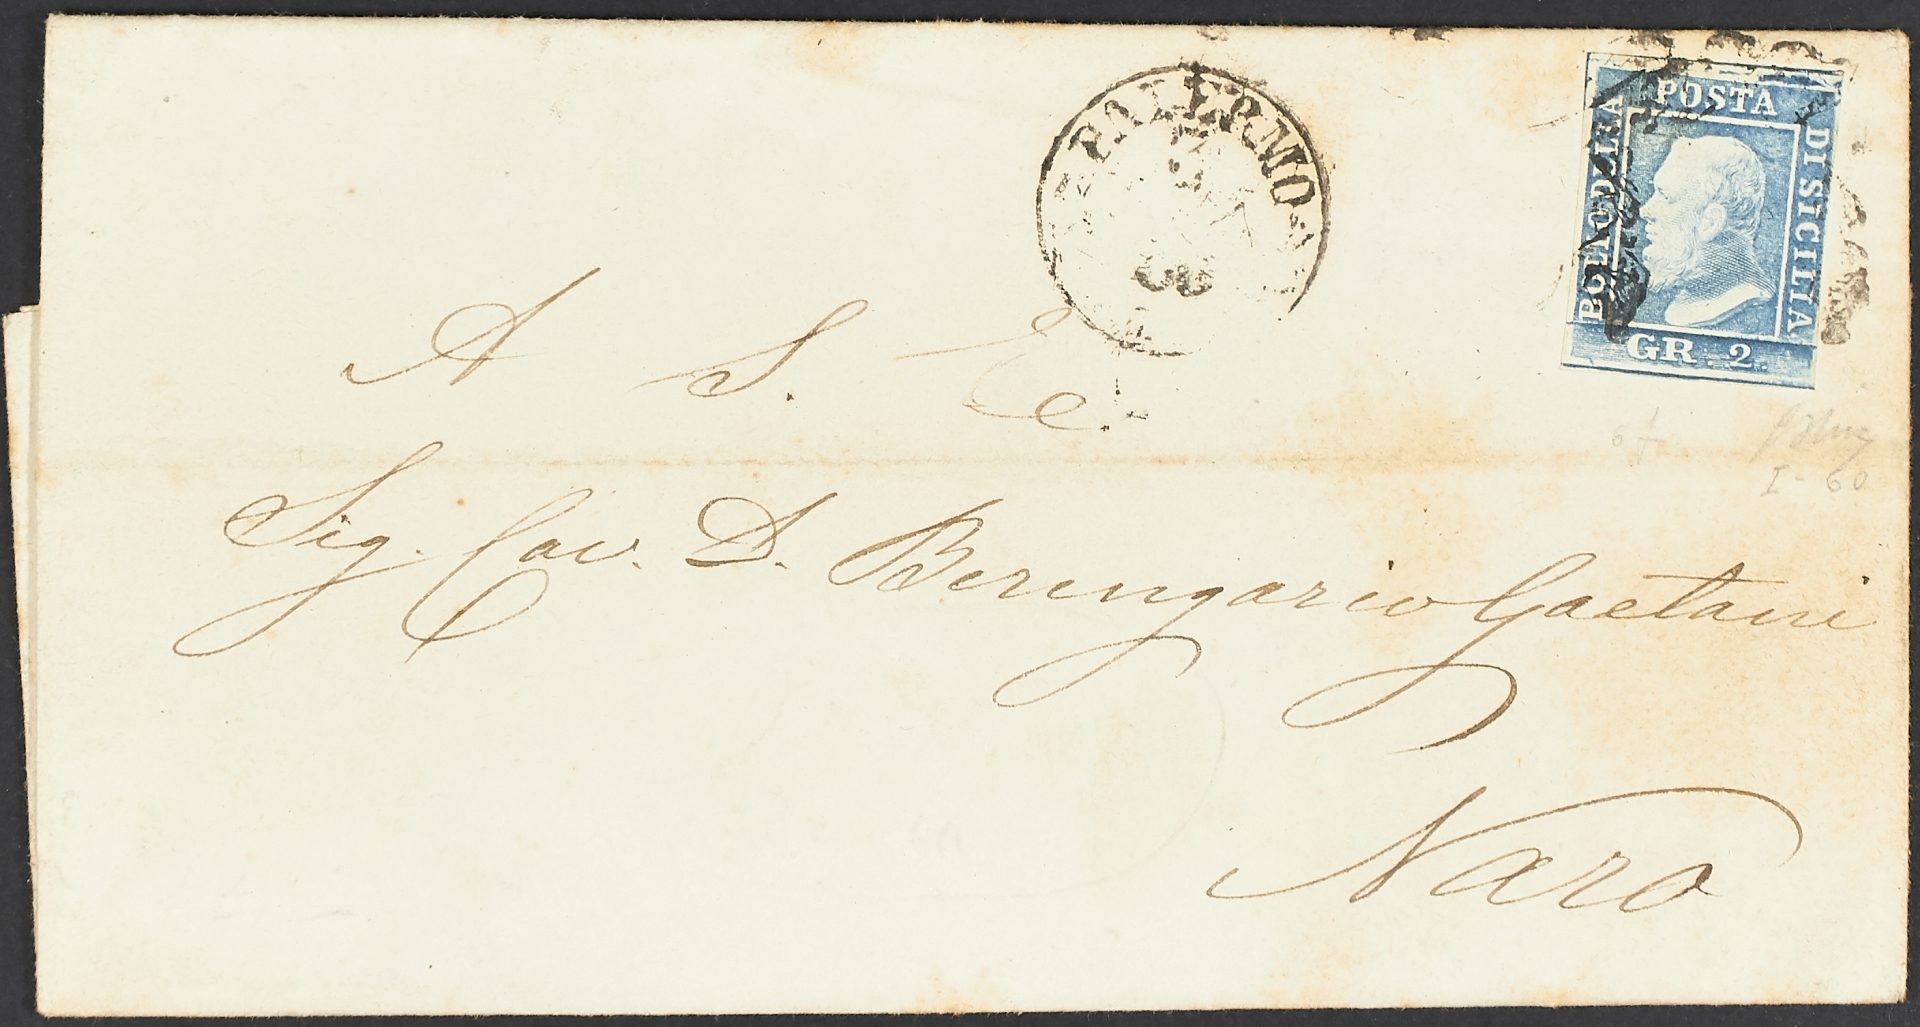 PALERMO
60
BOLLO DELLA
POSTA
DI SICILIA
GR. 2.
A S. E.
Sig. Cav. D. Berengario Gaetani
Naro
I - 60